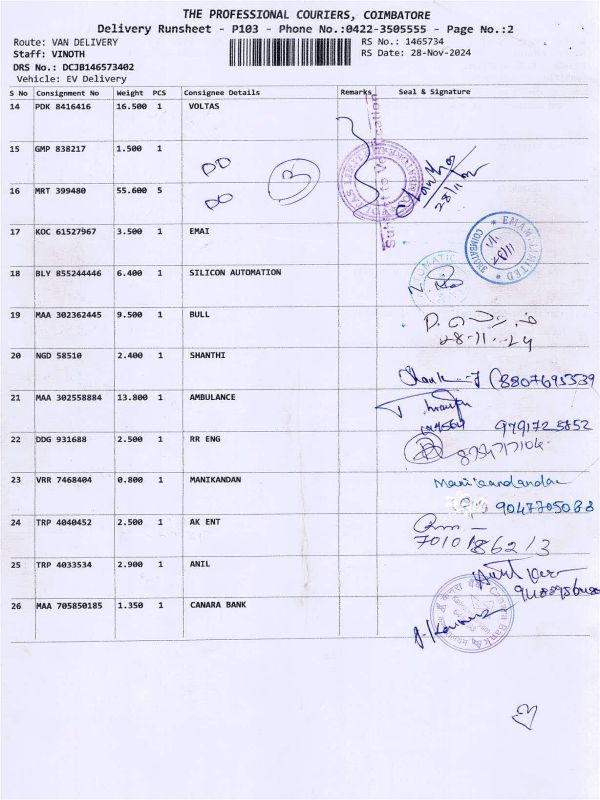 THE PROFESSIONAL COURIERS, COIMBATORE
Delivery Runsheet - P103 - Phone No.:0422-3505555 - Page No.:2
Route: VAN DELIVERY
RS No.: 1465734
Staff: VINOTH
RS Date: 28-Nov-2024
DRS No.: DCJB146573402
Vehicle: EV Delivery
S No Consignment No Weight PCS Consignee Details Remarks Seal & Signature
14 PDK 8416416 16.500 1 VOLTAS
15 GMP 838217 1.500 1
DD
16 MRT 399480 55.600 5
DD
17 KOC 61527967 3.500 1 EMAI
18 BLY 855244446 6.400 1 SILICON AUTOMATION
19 MAA 302362445 9.500 1 BULL
28-11-24
20 NGD 58510 2.400 1 SHANTHI
8807695539
21 MAA 302558884 13.800 1 AMBULANCE
9791725852
22 DDG 931688 2.500 1 RR ENG
23 VRR 7468404 0.800 1 MANIKANDAN
9047705088
24 TRP 4040452 2.500 1 AK ENT
25 TRP 4033534 2.900 1 ANIL
26 MAA 705850185 1.350 1 CANARA BANK